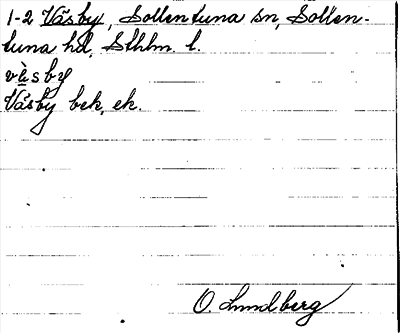 1-2 Väsby, Sollentuna sn, Sollen-
tuna hd, Sthlm. l.
vä̀sby
Väsby bek, ek.
O. Lundberg